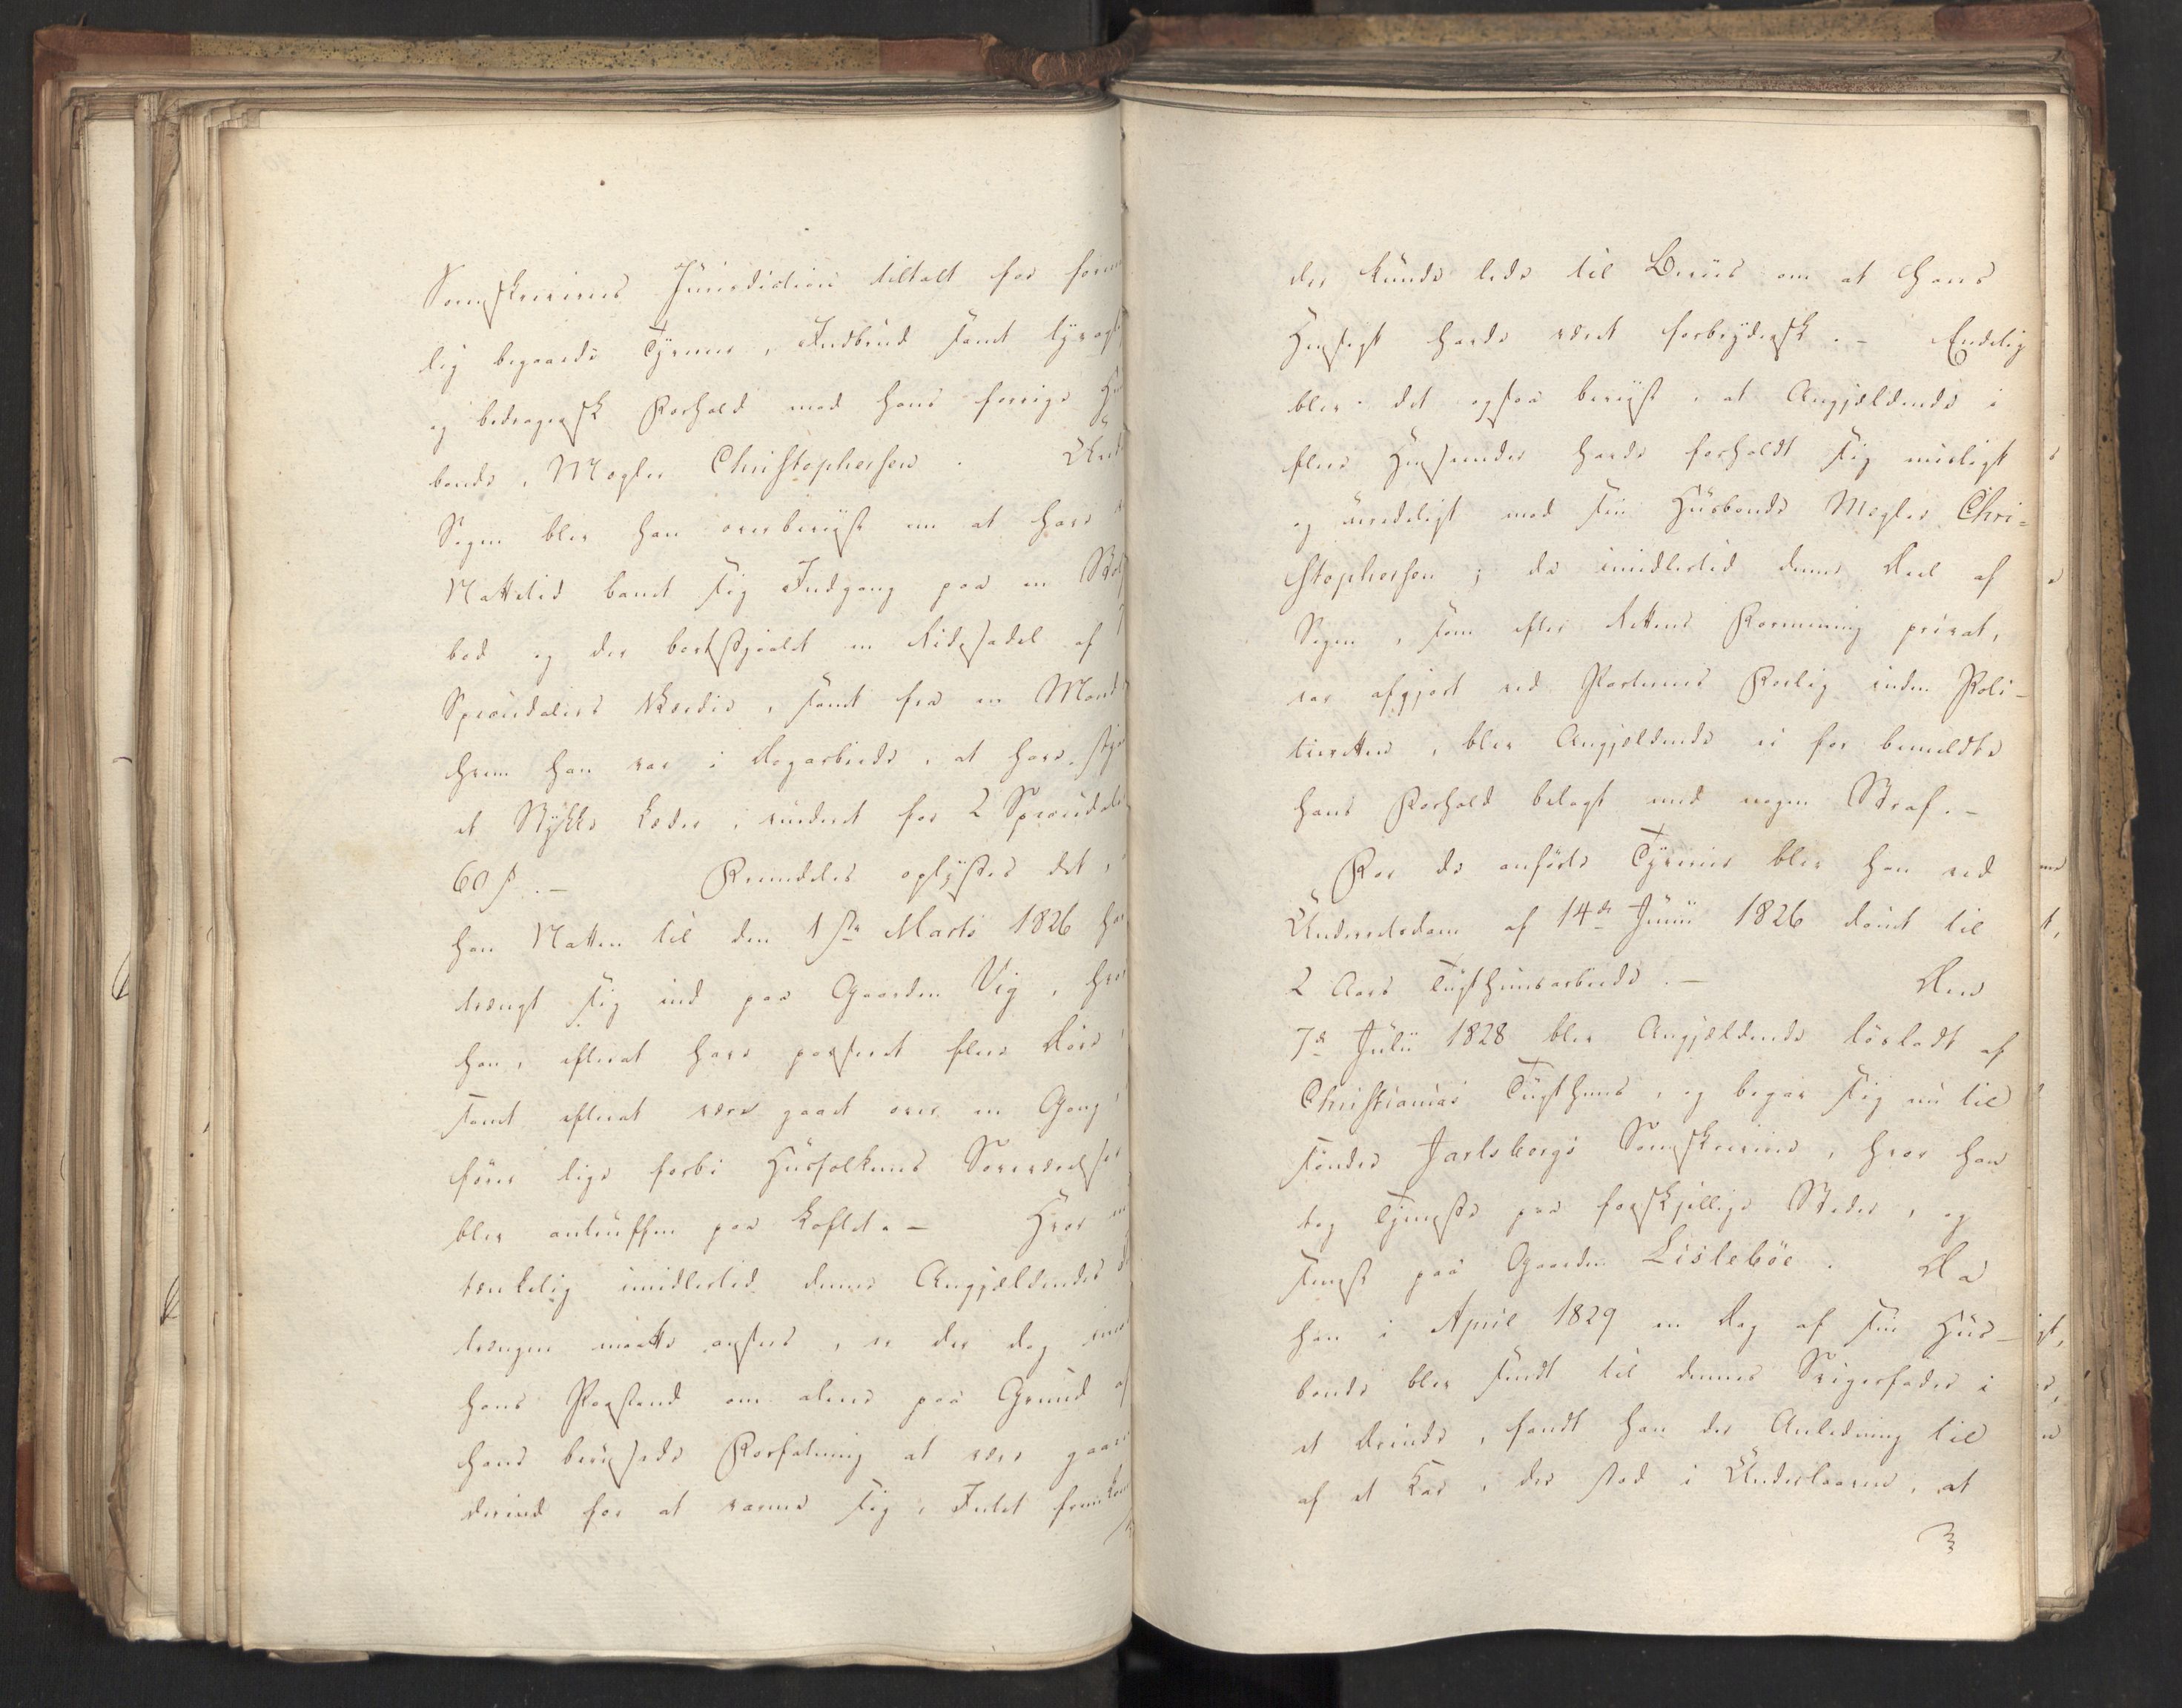 Sorenskriveries Jurisdiction tiltalt for formeent-
lig begaaede Tyverier, Indbrud samt lyvagtigt
og bedragersk Forhold mod hans forrige Huus-
bonde, Mægler Christophersen. Under
Sagen blev han overbeviist om at have ved
Nattetid banet sig Indgang paa en
bod og der bortstjaalet en Ridesadel af
Speciedalers Værdie, samt fra en Mand,
hvem han var i Dagarbeide, at have stjaalet
et Stykke Læder, vurderet for 2 Speciedaler
60 s. – Fremdeles oplystes det, at
han Natten til den 1ste Marts 1826 havde
trængt sig ind paa Gaarden Vig, hvor
han, efterat have passeret flere Døre,
samt efterat være gaaet over en Gang
føre lige forbi Huusfolkenes Soveværelser
blev antruffen paa Loftet. – Hvor mis-
tænkelig imidlertid denne Angjældendes Ind-
trængen maatte ansees, er der dog imod
hans Paastand om alene paa Grund af
hans berusede Forfatning at være gaaet
derind for at varme sig, Intet fremkommet
der kunde lede til Beviis om at hans
Hensigt havde været forbrydersk. – Endelig
blev det ogsaa beviist, at Angjældende i
flere Henseender havde forholdt sig misligt
og uredeligt mod sin Huusbonde Mægler Chri-
stophersen; da imidlertid denne Deel af
Sagen, som efter Rettens Formening privat,
var afgjort ved Parternes Forlig inden Poli-
tieretten, blev Angjældende ei for bemeldte
hans Forhold belagt med nogen Straf. –
For de anførte Tyverier blev han ved
Underretsdom af 14de Junii 1826 dømt til
2 Aars Tugthuusarbeide. – Den
7de Julii 1828 blev Angjældende løsladt af
Christianias Tugthuus, og begav sig nu til
søndre Jarlsbergs Sorenskriverie, hvor han
tog Tjeneste paa forskjellige Steder, og
senest paa Gaarden Lislebøe. Da
han i April 1829 en Dag af sin Huus-
bonde blev sendt til dennes Svigerfader i
et Ærinde, fandt han der Anledning til
af et Kar, der stod i Underlaaven, at